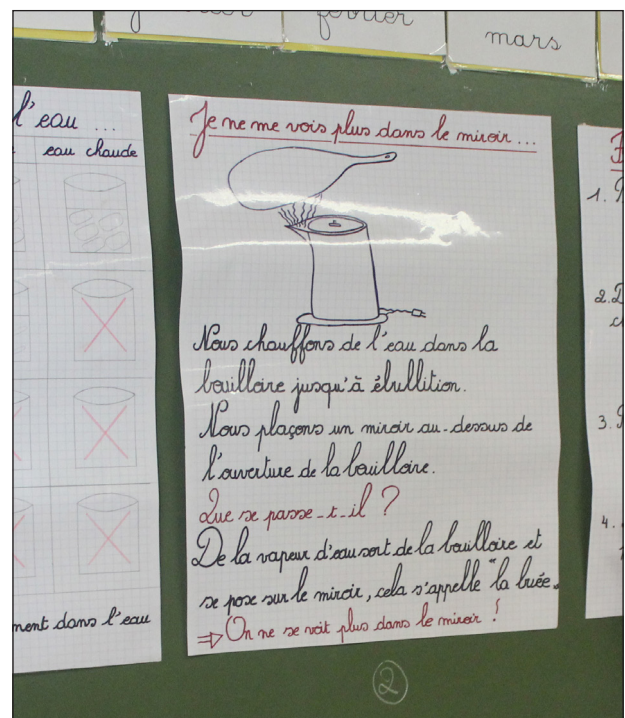 février
mars
l'eau ...
eau chaude
ment dans l'eau
Je ne me vois plus dans le miroir ...
Nous chauffons de l'eau dans la
bouilloire jusqu'à ébullition.
Nous plaçons un miroir au-dessus de
l'ouverture de la bouilloire.
Que se passe-t-il ?
De la vapeur d'eau sort de la bouilloire et
se pose sur le miroir, cela s'appelle "la buée"
⇒ On ne se voit plus dans le miroir !
1.
2.
3.
4.
2